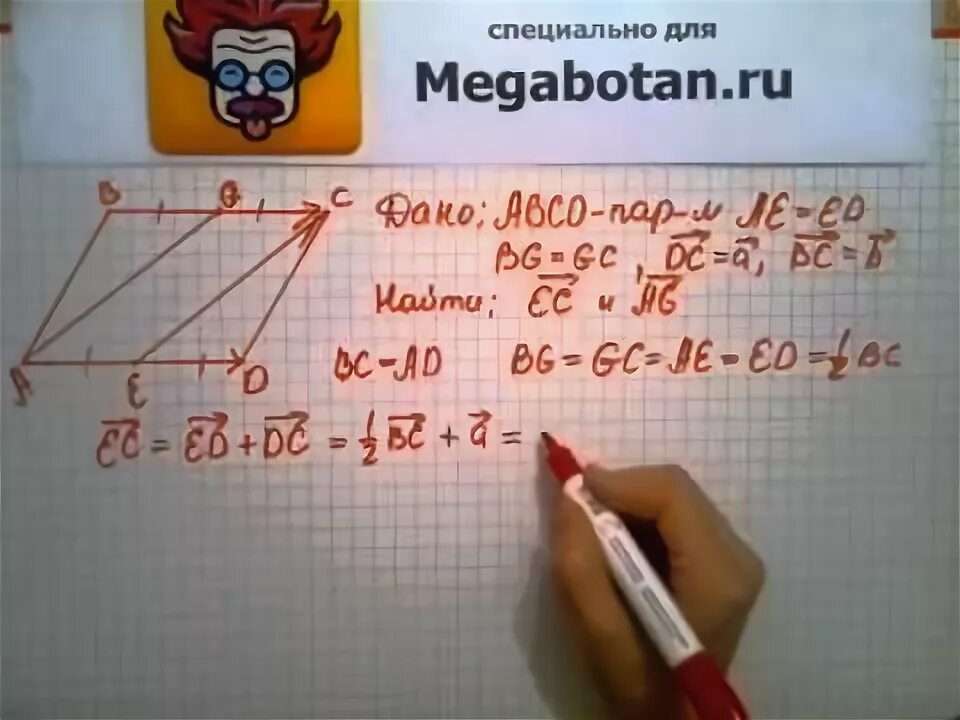 специально для
Megabotan.ru
B G C
Дано: ABCD-пар-м AE=ED
BG=GC, DC=a, BC=b
Найти: EC и AG
A E D
BC=AD BG=GC=AE=ED=½BC
EC=ED+DC=½BC+a=